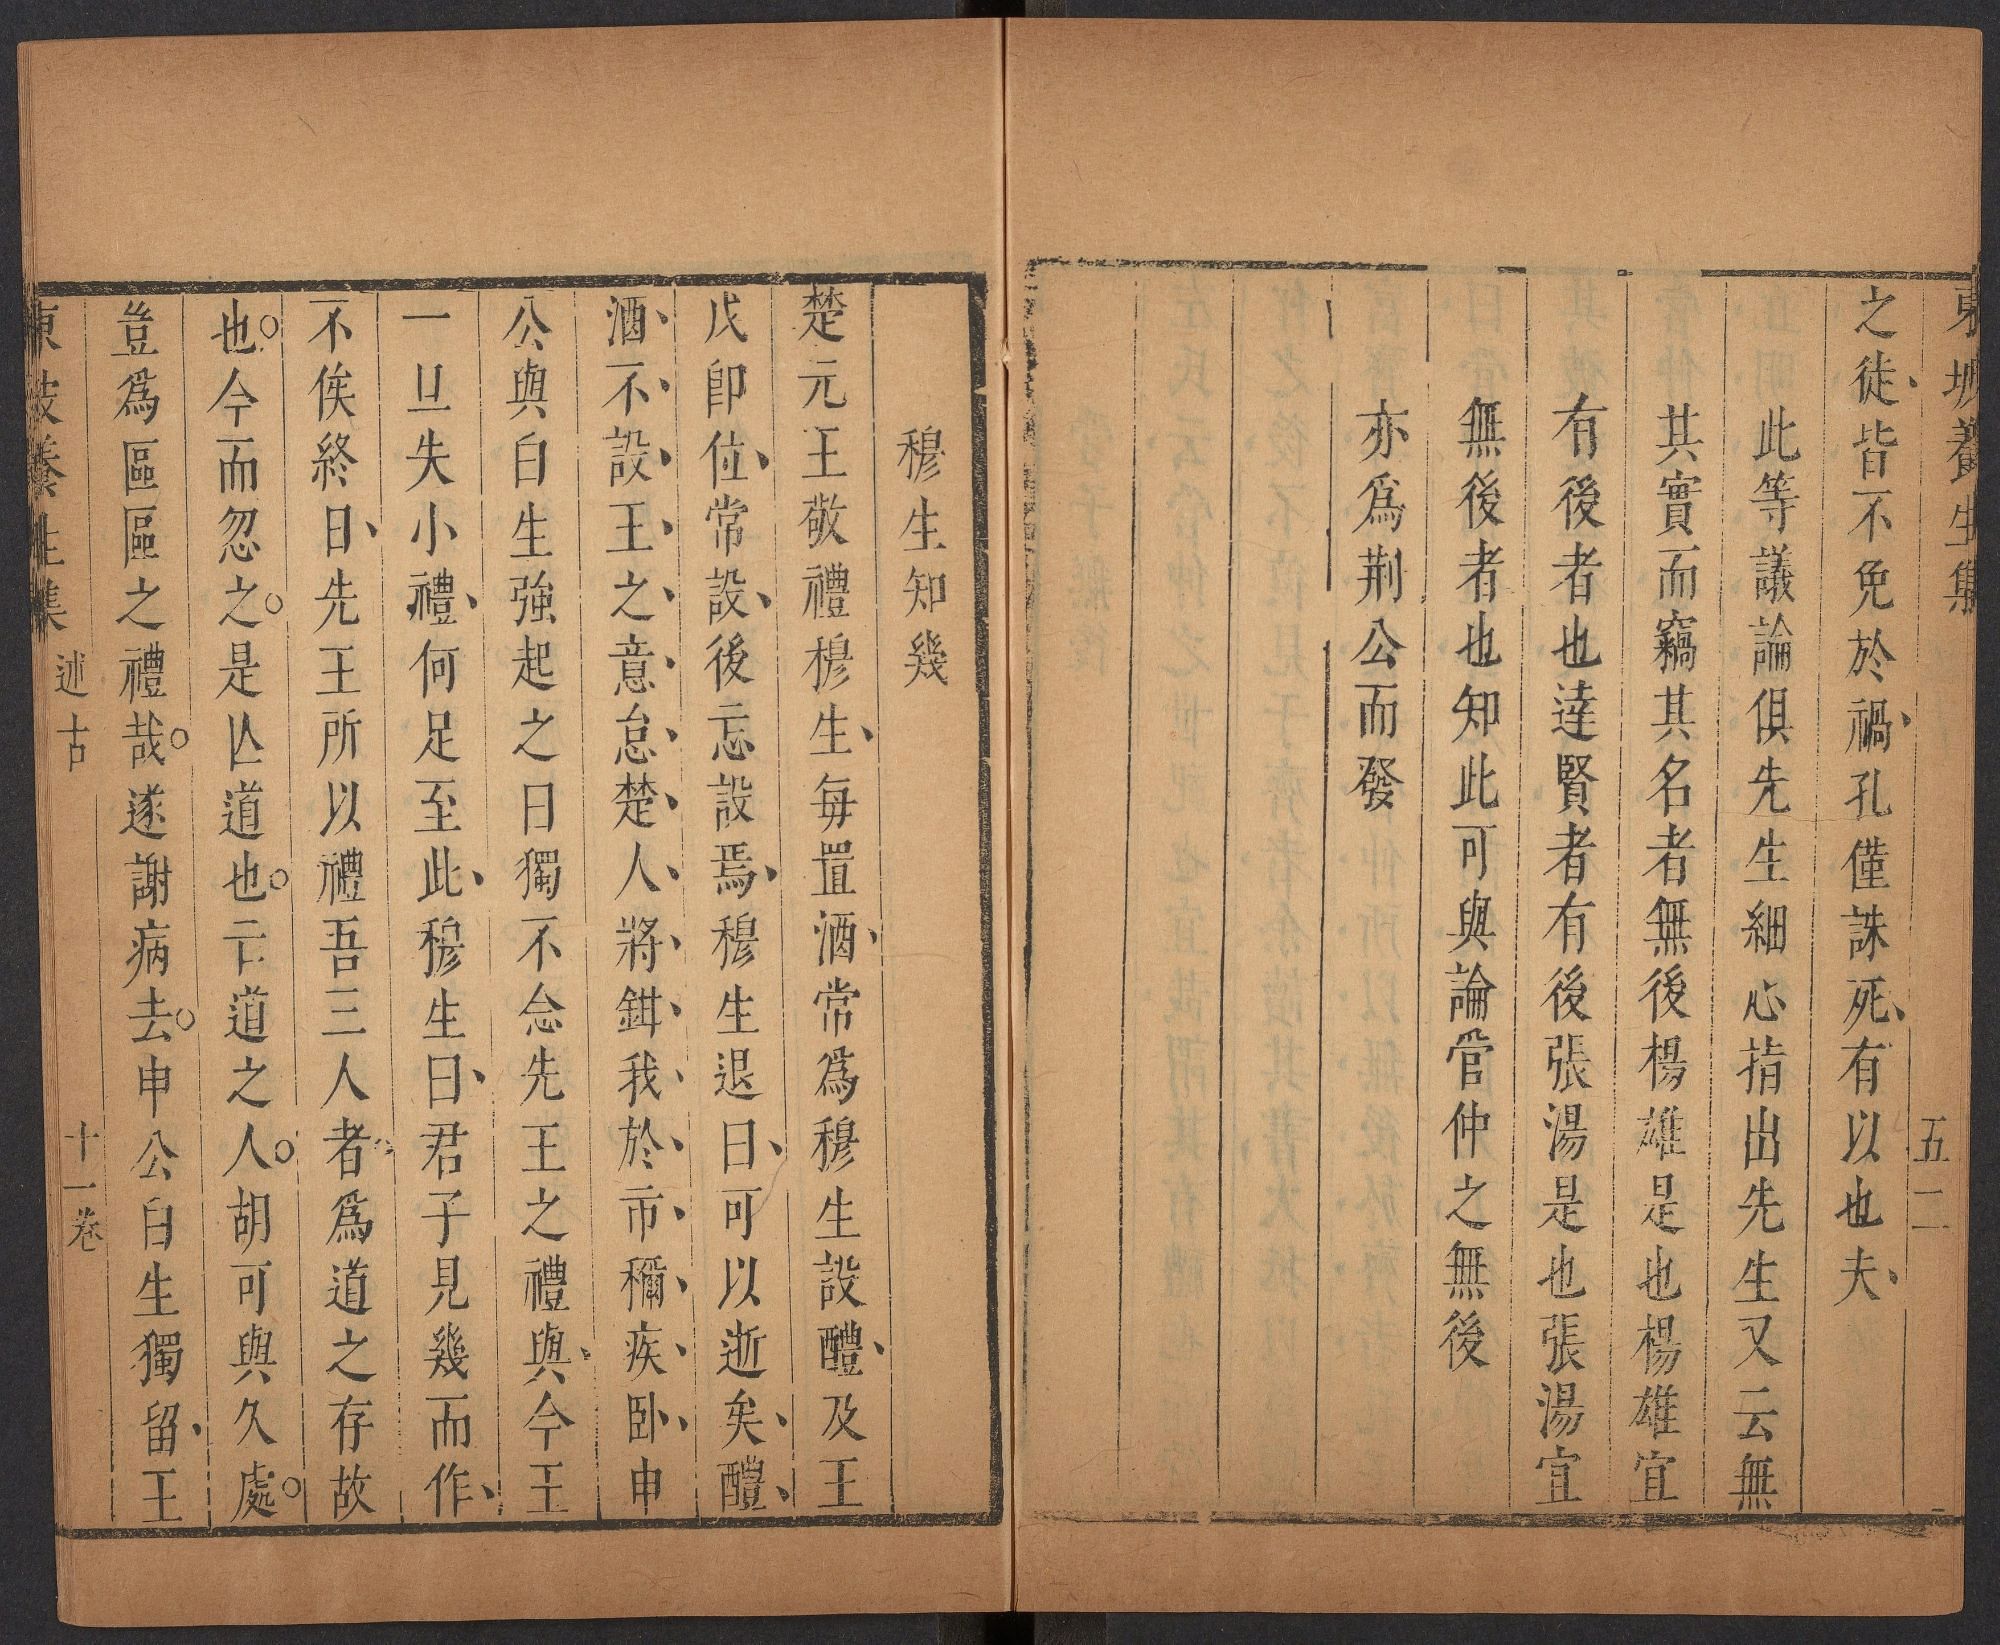 東坡養生集 五二
之徒皆不免於禍孔僅誅死有以也夫
此等議論俱先生細心指出先生又云無
其實而竊其名者無後楊雄是也楊雄宜
有後者也達賢者有後張湯是也張湯宜
無後者也知此可與論管仲之無後
亦爲荆公而發
穆生知幾
楚元王敬禮穆生每置酒常爲穆生設醴及王
戊卽位常設後忘設焉穆生退曰可以逝矣醴
酒不設王之意怠楚人將鉗我於市稱疾卧申
公與白生強起之曰獨不念先王之禮與今王
一旦失小禮何足至此穆生曰君子見幾而作
不俟終日先王所以禮吾三人者爲道之存故
也今而忽之是亾道也亾道之人胡可與久處
豈爲區區之禮哉遂謝病去申公白生獨留王
東坡養生集 述古 十一卷